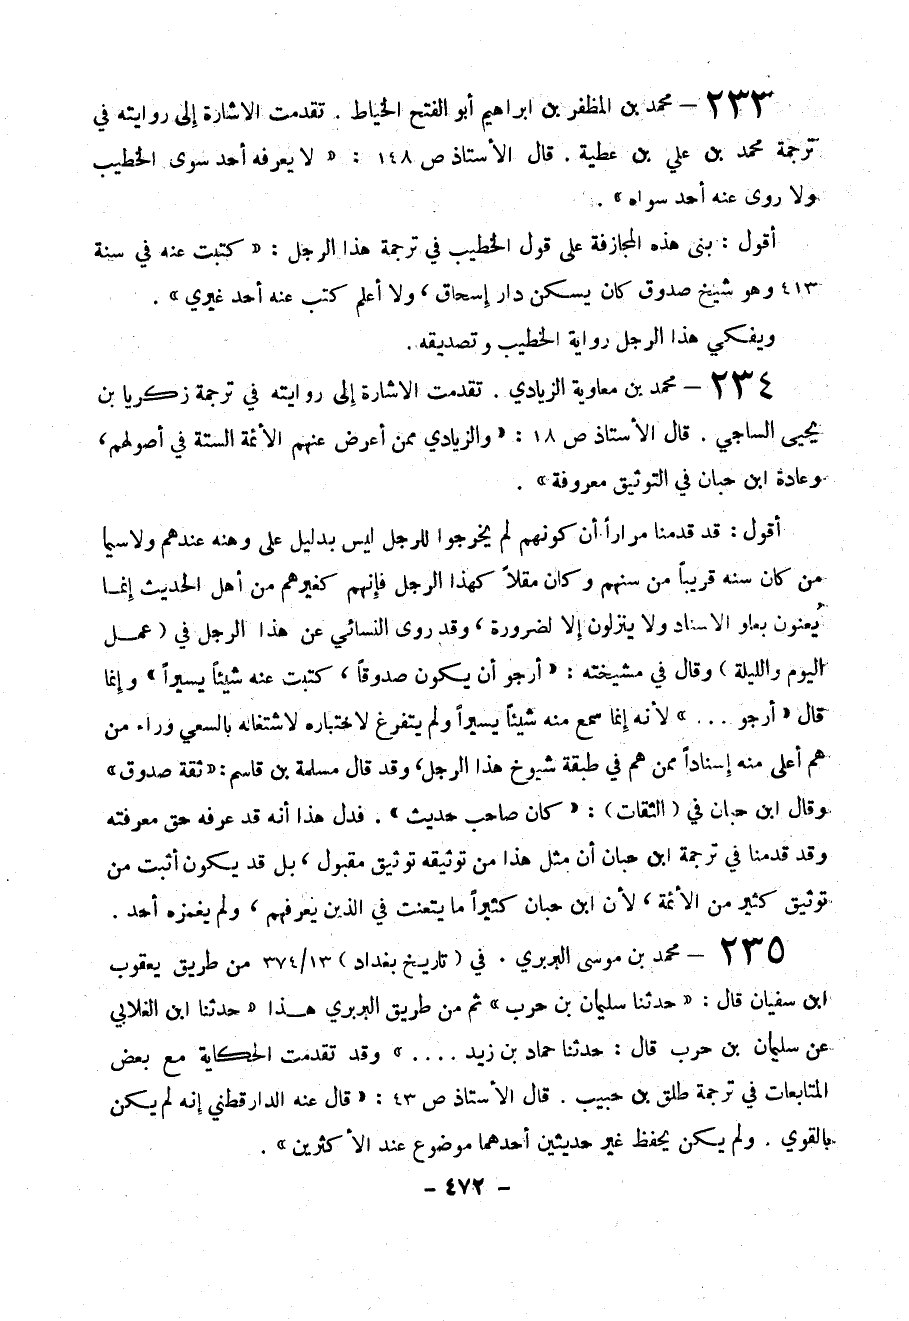 ٢٣٣ — محمد بن المظفر بن ابراهيم أبو الفتح الخياط . تقدمت الاشارة إلى روايته في
ترجمة محمد بن علي بن عطية . قال الأستاذ ص ١٤٨ : « لا يعرفه أحد سوى الخطيب
ولا روى عنه أحد سواه » .
أقول : بنى هذه المجازفة على قول الخطيب في ترجمة هذا الرجل : « كتبت عنه في سنة
٤١٣ وهو شيخ صدوق كان يسكن دار إسحاق ، ولا أعلم كتب عنه أحد غيري » .
ويفكي هذا الرجل رواية الخطيب وتصديقه .
٢٣٤ — محمد بن معاوية الزيادي . تقدمت الاشارة إلى روايته في ترجمة زكريا بن
يحيى الساجي . قال الأستاذ ص ١٨ : « والزيادي ممن أعرض عنهم الأئمة الستة في أصولهم ،
وعادة ابن حبان في التوثيق معروفة » .
أقول : قد قدمنا مراراً أن كونهم لم يخرجوا للرجل ليس بدليل على وهنه عندهم ولاسيما
من كان سنه قريباً من سنهم وكان مقلاً كهذا الرجل فإنهم كغيرهم من أهل الحديث إنما
يُعنون بعلو الاسناد ولا ينزلون إلا لضرورة ، وقد روى النسائي عن هذا الرجل في ( عمل
اليوم والليلة ) وقال في مشيخته : « أرجو أن يكون صدوقاً ، كتبت عنه شيئاً يسيراً » وإنما
قال « أرجو ... » لأنه إنما سمع منه شيئاً يسيراً ولم يتفرغ لاختباره لاشتغاله بالسعي وراء من
هم أعلى منه إسناداً ممن هم في طبقة شيوخ هذا الرجل ، وقد قال مسلمة بن قاسم : « ثقة صدوق »
وقال ابن حبان في ( الثقات ) : « كان صاحب حديث » . فدل هذا أنه قد عرفه حق معرفته
وقد قدمنا في ترجمة ابن حبان أن مثل هذا من توثيقه توثيق مقبول ، بل قد يكون أثبت من
توثيق كثير من الأئمة ، لأن ابن حبان كثيراً ما يتعنت في الذين يعرفهم ، ولم يغمزه أحد .
٢٣٥ — محمد بن موسى البربري . في ( تاريخ بغداد ) ٣٧٤/١٣ من طريق يعقوب
ابن سفيان قال : « حدثنا سليمان بن حرب » ثم من طريق البربري هذا « حدثنا ابن الغلابي
عن سليمان بن حرب قال : حدثنا حماد بن زيد .... » وقد تقدمت الحكاية مع بعض
المتابعات في ترجمة طلق بن حبيب . قال الأستاذ ص ٤٣ : « قال عنه الدارقطني إنه لم يكن
بالقوي . ولم يكن يحفظ غير حديثين أحدهما موضوع عند الأكثرين » .
- ٤٧٢ -